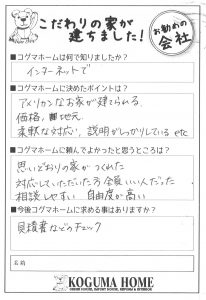 こだわりの家が
建ちました!
お勧めの
会社
■コグマホームは何で知りましたか?
インターネットで
■コグマホームに決めたポイントは?
アメリカンなお家が建てられる
価格, 地元
柔軟な対応, 説明がしっかりしている etc
■コグマホームに頼んでよかったと思うところは?
思いどおりの家がつくれた
対応していただいた方全員いい人だった
相談しやすい 自由度が高い
■今後コグマホームに求める事はありますか?
見積書などのチェック
名前
KOGUMA HOME
ORDER HOUSE, IMPORT HOUSE, REFORM & EXTERIOR